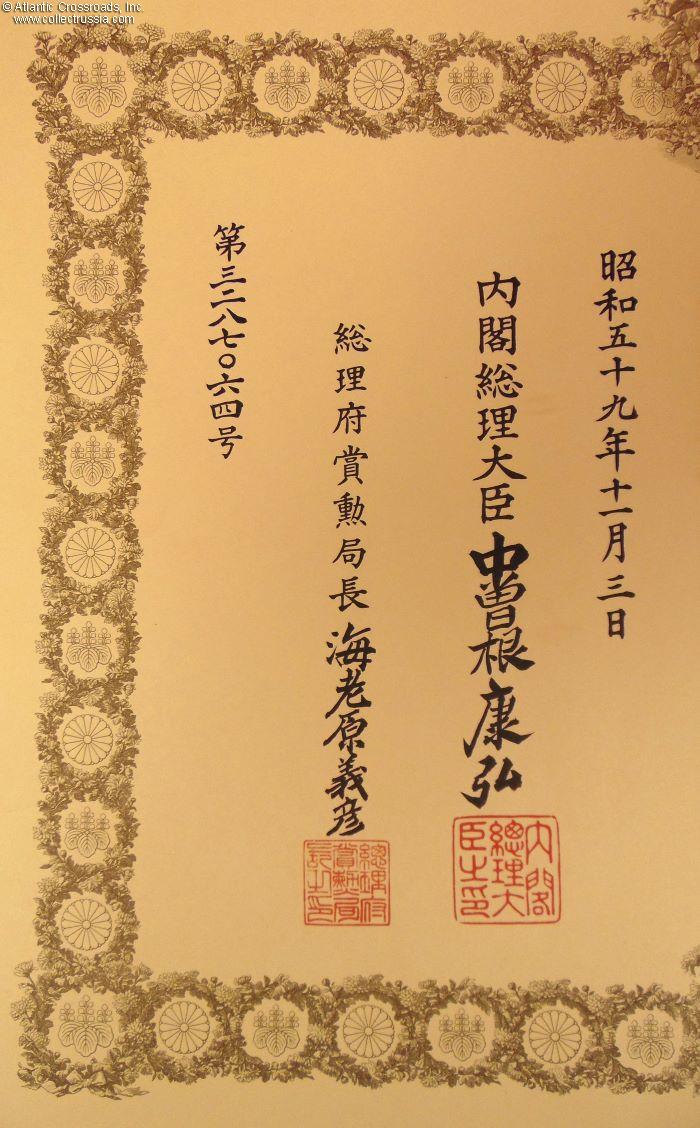 © Atlantic Crossroads, Inc.
www.collectrussia.com
昭和五十九年十一月三日
内閣総理大臣 中曽根康弘
内閣
總理大
臣之印
総理府賞勲局長 海老原義彦
總理府
賞勲局
長之印
第三二八七〇六四号